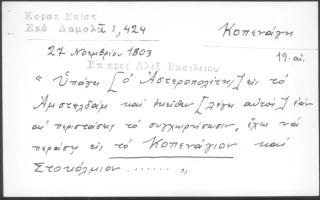 Κοραη Επιστ
Εκδ Δαμαλᾶ 1, 424
Κοπενάγη
27 Νοεμβρίου 1803
19. αι.
Επ προς Αλεξ Βασιλειου
« Ὑπάγει [ὁ Ἀστεροπολίτης] εἰς τὸ
Ἀμστελδὰμ καὶ ἐκεῖθεν [λέγει αὐτός] ἐὰν
αἱ περιστάσεις τὸ συγχωρήσωσιν, ἔχει νὰ
περάσῃ εἰς τὸ Κοπενάγιον καὶ
Στοκόλμιον ....... »